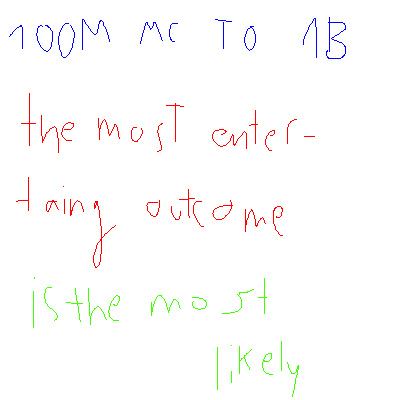 100M MC TO 1B
the most enter-
taing outcome
is the most
likely